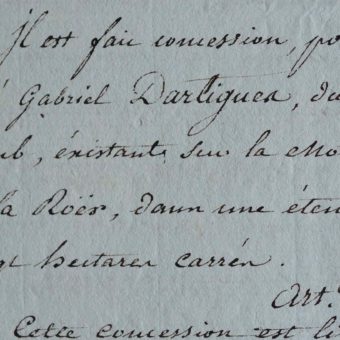 Il est fait concession, po
é Gabriel Dartigues, du
ub, existants sur la
la Roër, dans une éten
gt hectares carrés.
Art.
Cette concession est li